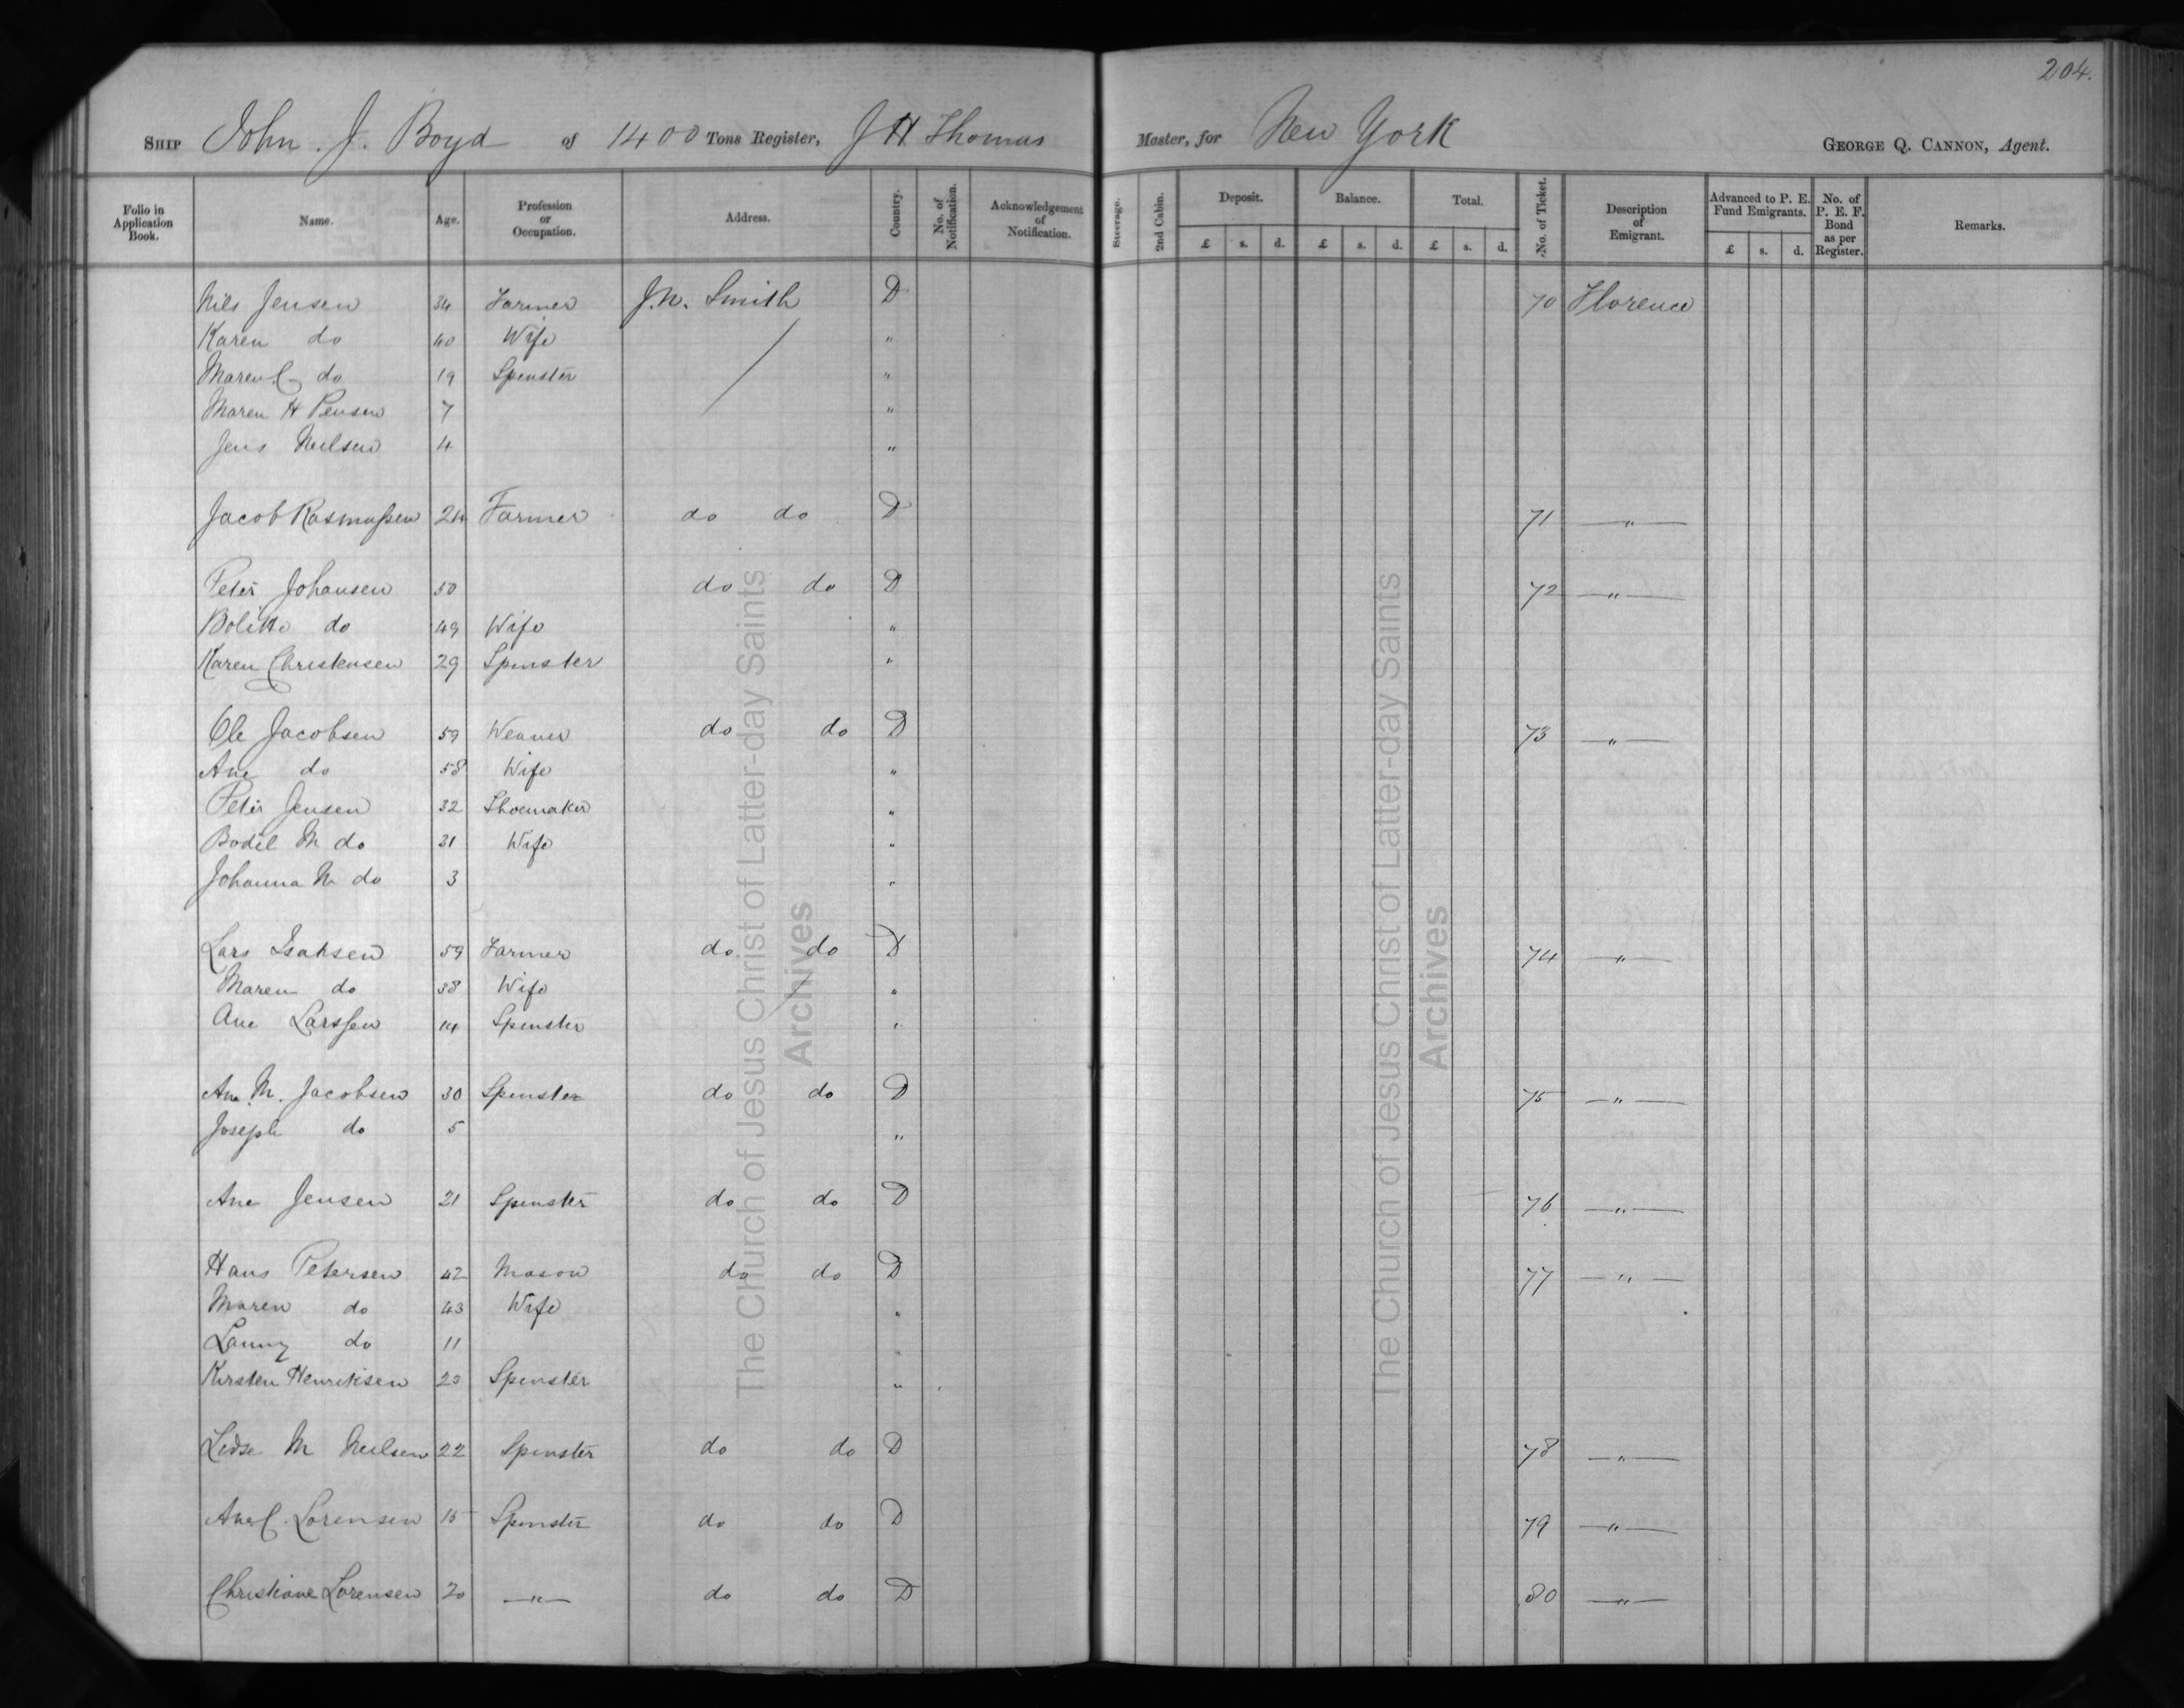 204.
SHIP John. J. Boyd of 1400 Tons Register, J H Thomas Master, for New York GEORGE Q. CANNON, Agent.
Folio in Application Book. Name. Age. Profession or Occupation. Address. Country. No. of Notification. Acknowledgement of Notification. Steerage. 2nd Cabin. Deposit. Balance. Total. No. of Ticket. Description of Emigrant. Advanced to P. E. Fund Emigrants. No. of P. E. F. Bond as per Register. Remarks.
£ s. d. £ s. d. £ s. d. £ s. d.
Nils Jensen 34 Farmer J.N. Smith D 70 Florence
Karen do 40 Wife "
Maren C do 19 Spenster "
Maren H Pensen 7 "
Jens Neilsen 4 "
Jacob Rasmussen 24 Farmer do do D 71 "
Peter Johansen 50 do do D 72 "
do 49 Wife "
Karen Christensen 29 Spinster "
Ole Jacobsen 59 Weaver do do D 73 "
Ane do 58 Wife "
Peter Jensen 32 Shoemaker "
Bodil M do 31 Wife "
Johanna M do 3 "
Lars Isaksen 59 Farmer do do D 74 "
Maren do 38 Wife "
Ane Larssen 14 Spenster "
Ane M. Jacobsen 30 Spenster do do D 75 "
Joseph do 5 "
Ane Jensen 21 Spenster do do D 76 "
Hans Petersen 42 Mason do do D 77 "
Maren do 43 Wife "
do 11 "
Kirsten Henriksen 23 Spenster "
M Neilsen 22 Spenster do do D 78 "
Ane C. Lorensen 15 Spenster do do D 79 "
Christiane Lorensen 20 " do do D 80 "
The Church of Jesus Christ of Latter-day Saints
Archives
The Church of Jesus Christ of Latter-day Saints
Archives